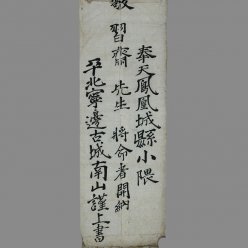 奉天鳳凰城縣小隈
習齋 先生 將命者開納
平北寧邊古城南山謹上書